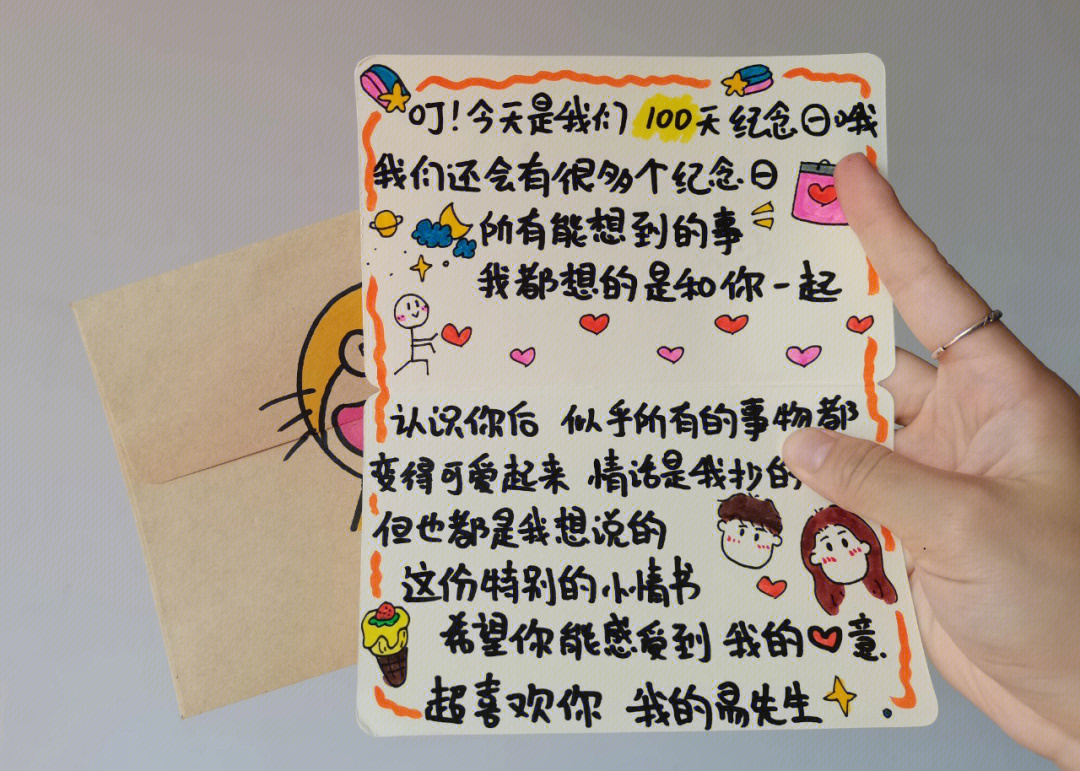 叮!今天是我们100天纪念日哦
我们还会有很多个纪念日
所有能想到的事
我都想的是和你一起
认识你后 似乎所有的事物都
变得可爱起来 情话是我抄的
但也都是我想说的
这份特别的小情书
希望你能感受到 我的❤意.
超喜欢你 我的易先生